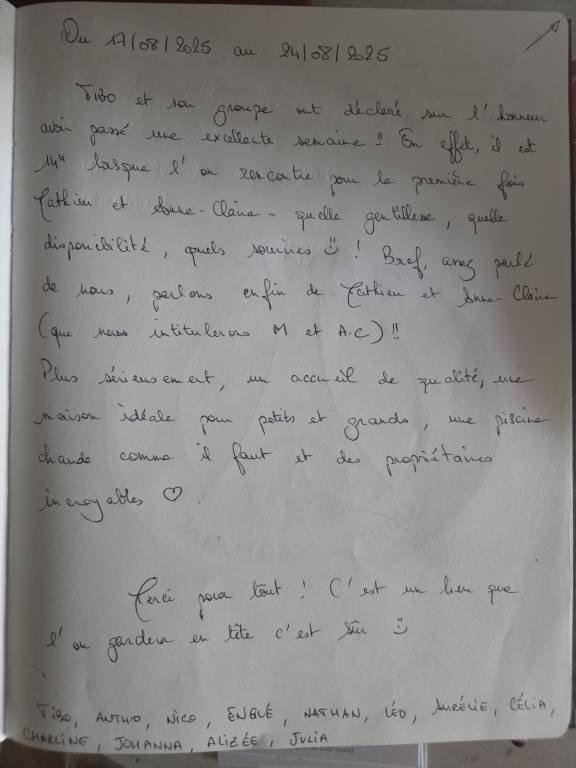 Du 17/08/2025 au 24/08/2025
TIBO et son groupe ont déclaré sur l'honneur
avoir passé une excellente semaine !! En effet, il est
14H lorsque l'on rencontre pour la première fois
Mathieu et Anne-Claire - quelle gentillesse, quelle
disponibilité, quels sourires ! Bref, assez parlé
de nous, parlons enfin de Mathieu et Anne-Claire
(que nous intitulerons M et A-C) !!
Plus sérieusement, un accueil de qualité, une
maison idéale pour petits et grands, une piscine
chaude comme il faut et des propriétaires
incroyables ♡.
Merci pour tout ! C'est un lieu que
l'on gardera en tête c'est sûr
TIBO, ANTHO, NICO, ENGUÉ, NATHAN, LÉO, AURÉLIE, CÉLIA,
CHARLINE, JOHANNA, ALIZÉE, JULIA